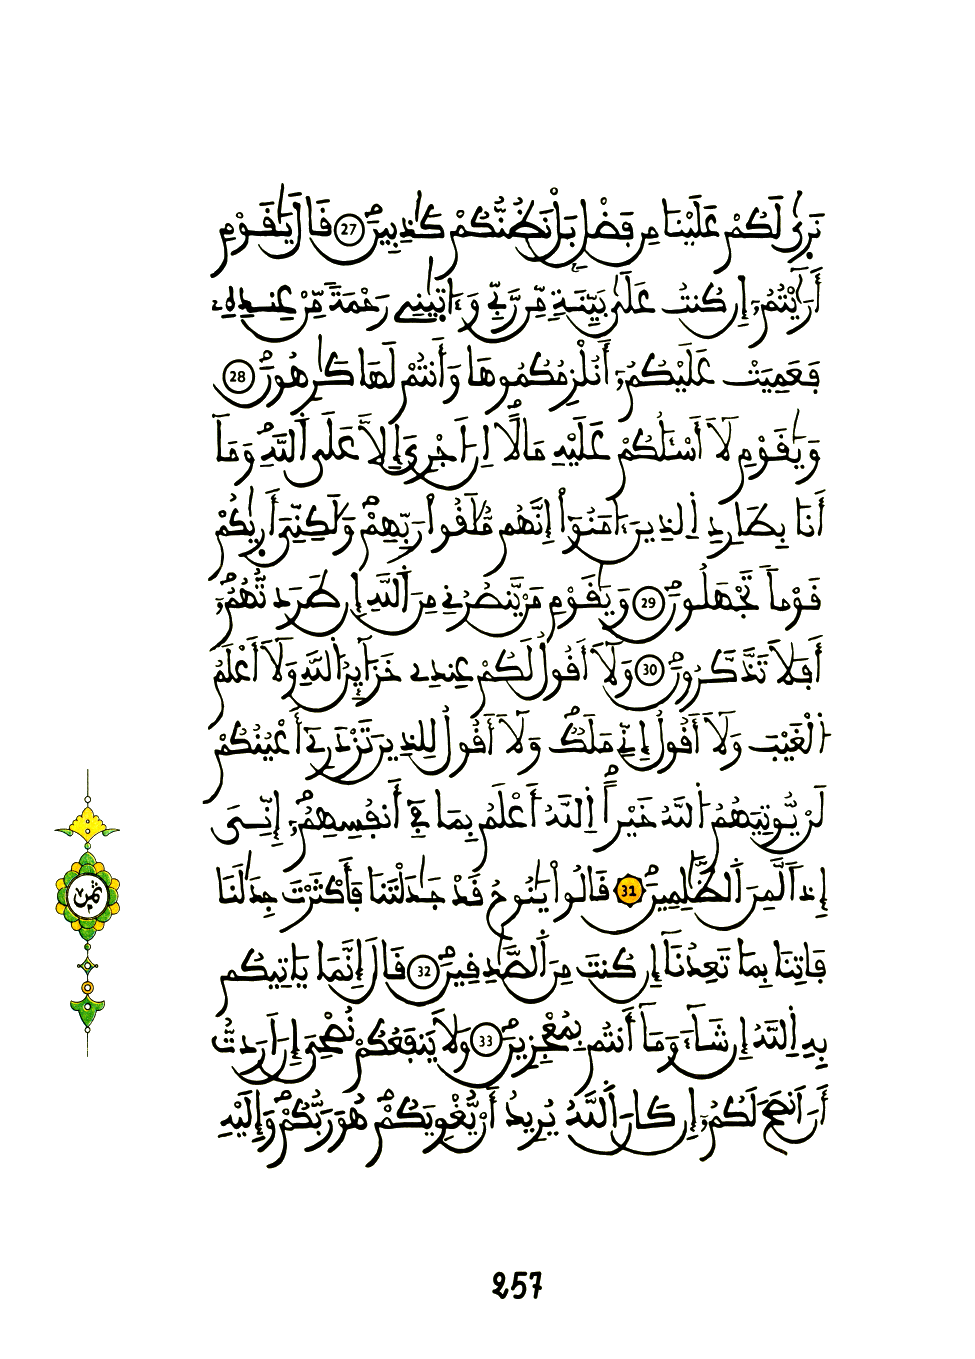 نَرٜىٰ لَكُمْ عَلَيْنَا مِن فَضْلِۢ بَلْ نَظُنُّكُمْ كَٰذِبِينَۖ 27 قَالَ يَٰقَوْمِ
أَرَٰٓيْتُمُۥٓ إِن كُنتُ عَلَىٰ بَيِّنَةٖ مِّن رَّبِّے وَءَاتٜيٰنِے رَحْمَةٗ مِّنْ عِندِهِۦ
فَعَمِيَتْ عَلَيْكُمُۥٓ أَنُلْزِمُكُمُوهَا وَأَنتُمْ لَهَا كَٰرِهُونَۖ 28
وَيَٰقَوْمِ لَآ أَسْـَٔلُكُمْ عَلَيْهِ مَالًاۖ اِنَ اَجْرِيَ إِلَّا عَلَى اَ۬للَّهِۖ وَمَآ
أَنَا بِطَارِدِ اِ۬لذِينَ ءَامَنُوٓاْۖ إِنَّهُم مُّلَٰقُواْ رَبِّهِمْۖ وَلَٰكِنِّيَ أَر۪يٰكُمْ
قَوْماٗ تَجْهَلُونَۖ 29 وَيَٰقَوْمِ مَنْ يَّنصُرُنِے مِنَ اَ۬للَّهِ إِن طَرَدتُّهُمُۥٓۖ
أَفَلَا تَذَّكَّرُونَۖ 30 وَلَآ أَقُولُ لَكُمْ عِندِے خَزَآئِنُ اُ۬للَّهِ وَلَآ أَعْلَمُ
اُ۬لْغَيْبَ وَلَآ أَقُولُ إِنِّے مَلَكٞۖ وَلَآ أَقُولُ لِلذِينَ تَزْدَرِےٓ أَعْيُنُكُمْ
لَنْ يُّوتِيَهُمُ اُ۬للَّهُ خَيْراًۖ اِ۬للَّهُ أَعْلَمُ بِمَا فِےٓ أَنفُسِهِمُۥٓ إِنِّيَ
إِذاٗ لَّمِنَ اَ۬لظَّٰلِمِينَۖ 31 قَالُواْ يَٰنُوحُ قَدْ جَٰدَلْتَنَا فَأَكْثَرْتَ جِدَٰلَنَا
فَاتِنَا بِمَا تَعِدُنَآ إِن كُنتَ مِنَ اَ۬لصَّٰدِقِينَۖ 32 قَالَ إِنَّمَا يَاتِيكُم
بِهِ اِ۬للَّهُ إِن شَآءَ وَمَآ أَنتُم بِمُعْجِزِينَۖ 33 وَلَا يَنفَعُكُمْ نُصْحِيَ إِنَ اَرَدتُّ
أَنَ اَنصَحَ لَكُمُۥٓ إِن كَانَ اَ۬للَّهُ يُرِيدُ أَنْ يُّغْوِيَكُمْۖ هُوَ رَبُّكُمْۖ وَإِلَيْهِ
ثمن
257